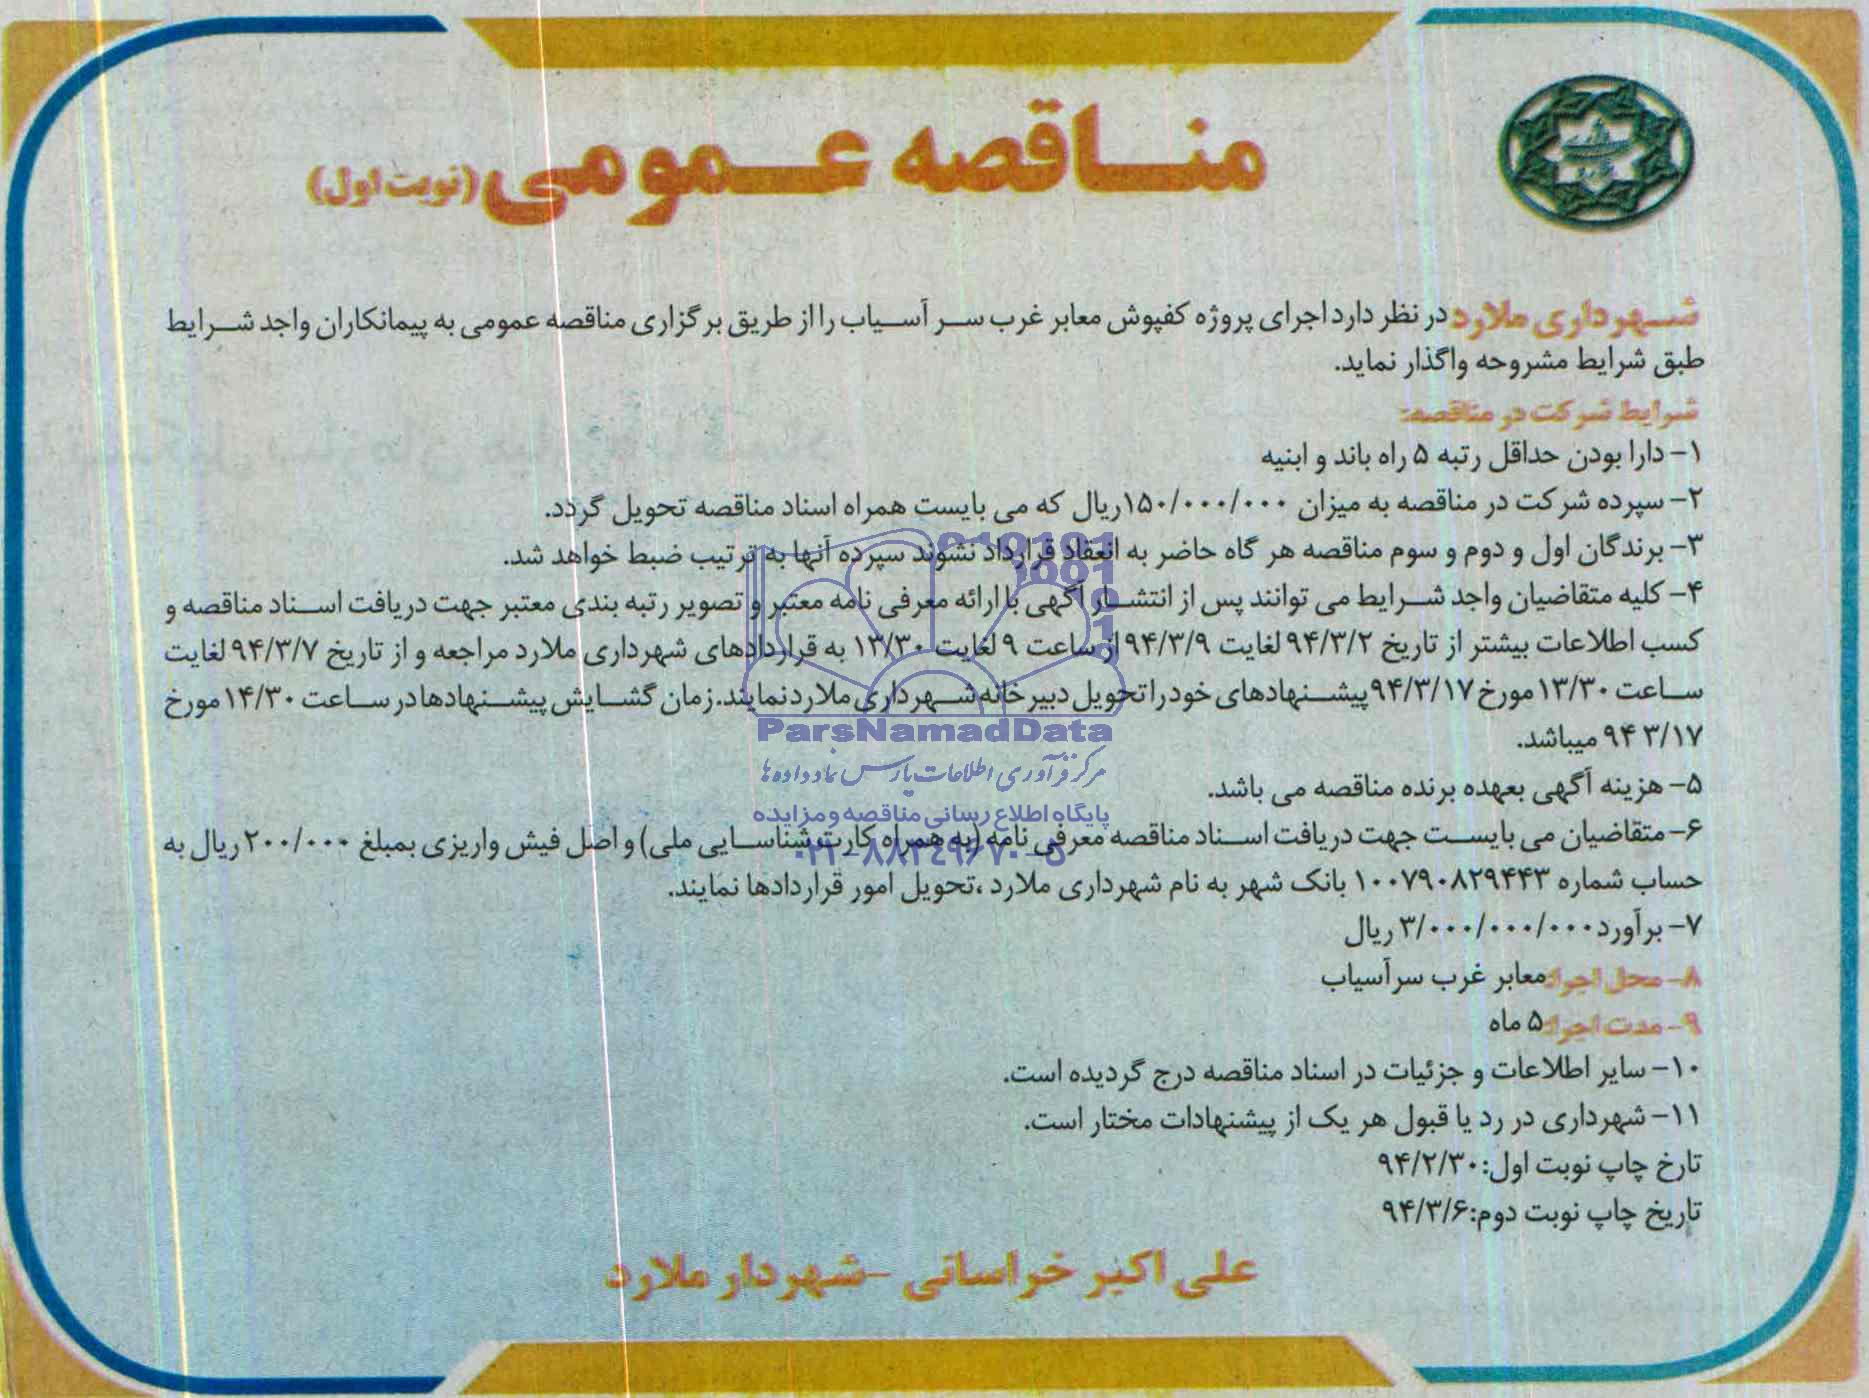 مناقصه عمومی (نوبت اول)
شهرداری ملارد در نظر دارد اجرای پروژه کفپوش معابر غرب سر آسیاب را از طریق برگزاری مناقصه عمومی به پیمانکاران واجد شرایط
طبق شرایط مشروحه واگذار نماید.
شرایط شرکت در مناقصه:
۱- دارا بودن حداقل رتبه ۵ راه باند و ابنیه
۲- سپرده شرکت در مناقصه به میزان ۱۵۰/۰۰۰/۰۰۰ریال که می بایست همراه اسناد مناقصه تحویل گردد.
۳- برندگان اول و دوم و سوم مناقصه هر گاه حاضر به انعقاد قرارداد نشوند سپرده آنها به ترتیب ضبط خواهد شد.
۴- کلیه متقاضیان واجد شرایط می توانند پس از انتشار آگهی با ارائه معرفی نامه معتبر و تصویر رتبه بندی معتبر جهت دریافت اسناد مناقصه و
کسب اطلاعات بیشتر از تاریخ ۹۴/۳/۲ لغایت ۹۴/۳/۹ از ساعت ۹ لغایت ۱۳/۳۰ به قراردادهای شهرداری ملارد مراجعه و از تاریخ ۹۴/۳/۷ لغایت
ساعت ۱۳/۳۰ مورخ ۹۴/۳/۱۷ پیشنهادهای خود را تحویل دبیرخانه شهرداری ملارد نمایند. زمان گشایش پیشنهادها در ساعت ۱۴/۳۰ مورخ
۹۴ ۳/۱۷ میباشد.
ParsNamadData
مرکز فرآوری اطلاعات پارس نماد داده ها
۵- هزینه آگهی بعهده برنده مناقصه می باشد.
پایگاه اطلاع رسانی مناقصه و مزایده
۶- متقاضیان می بایست جهت دریافت اسناد مناقصه معرفی نامه (به همراه کارت شناسایی ملی) و اصل فیش واریزی بمبلغ ۲۰۰/۰۰۰ ریال به
۰۲۱-۸۸۳۴۹۶۷۰-۵
حساب شماره ۱۰۰۷۹۰۸۲۹۴۴۳ بانک شهر به نام شهرداری ملارد ،تحویل امور قراردادها نمایند.
۷- برآورد ۳/۰۰۰/۰۰۰/۰۰۰ ریال
۸- محل اجرا: معابر غرب سرآسیاب
۹- مدت اجرا: ۵ ماه
۱۰- سایر اطلاعات و جزئیات در اسناد مناقصه درج گردیده است.
۱۱- شهرداری در رد یا قبول هر یک از پیشنهادات مختار است.
تارخ چاپ نوبت اول: ۹۴/۲/۳۰
تاریخ چاپ نوبت دوم: ۹۴/۳/۶
علی اکبر خراسانی - شهردار ملارد